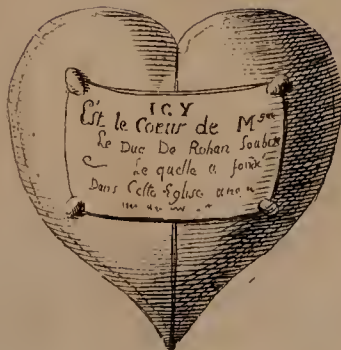 ICY
Est le Coeur de M
Le Duc De Rohan Soubize
Le quelle a fondé
Dans Cette Eglise une